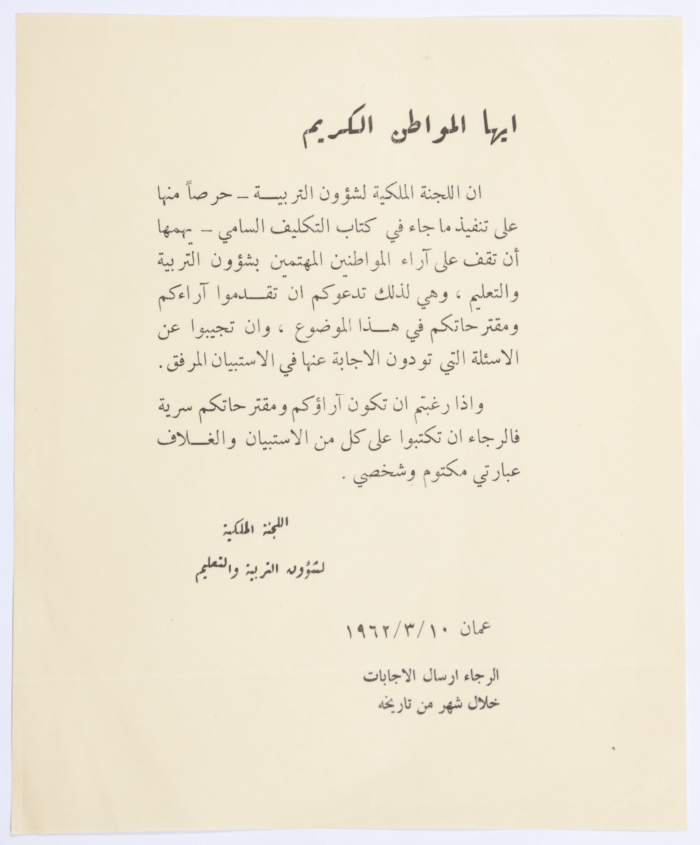 ايها المواطن الكريم
ان اللجنة الملكية لشؤون التربيــة ـ حرصاً منها
على تنفيذ ما جاء في كتاب التكليف السامي ـ يهمها
أن تقف على آراء المواطنين المهتمين بشؤون التربية
والتعليم ، وهي لذلك تدعوكم ان تقــدموا آراءكم
ومقترحاتكم في هــذا الموضوع ، وان تجيبوا عن
الاسئلة التي تودون الاجابة عنها في الاستبيان المرفق.
واذا رغبتم ان تكون آراؤكم ومقترحاتكم سرية
فالرجاء ان تكتبوا على كل من الاستبيان والغــلاف
عبارتي مكتوم وشخصي .
اللجنة الملكية
لشؤون التربية والتعليم
عمان ١٩٦٢/٣/١٠
الرجاء ارسال الاجابات
خلال شهر من تاريخه